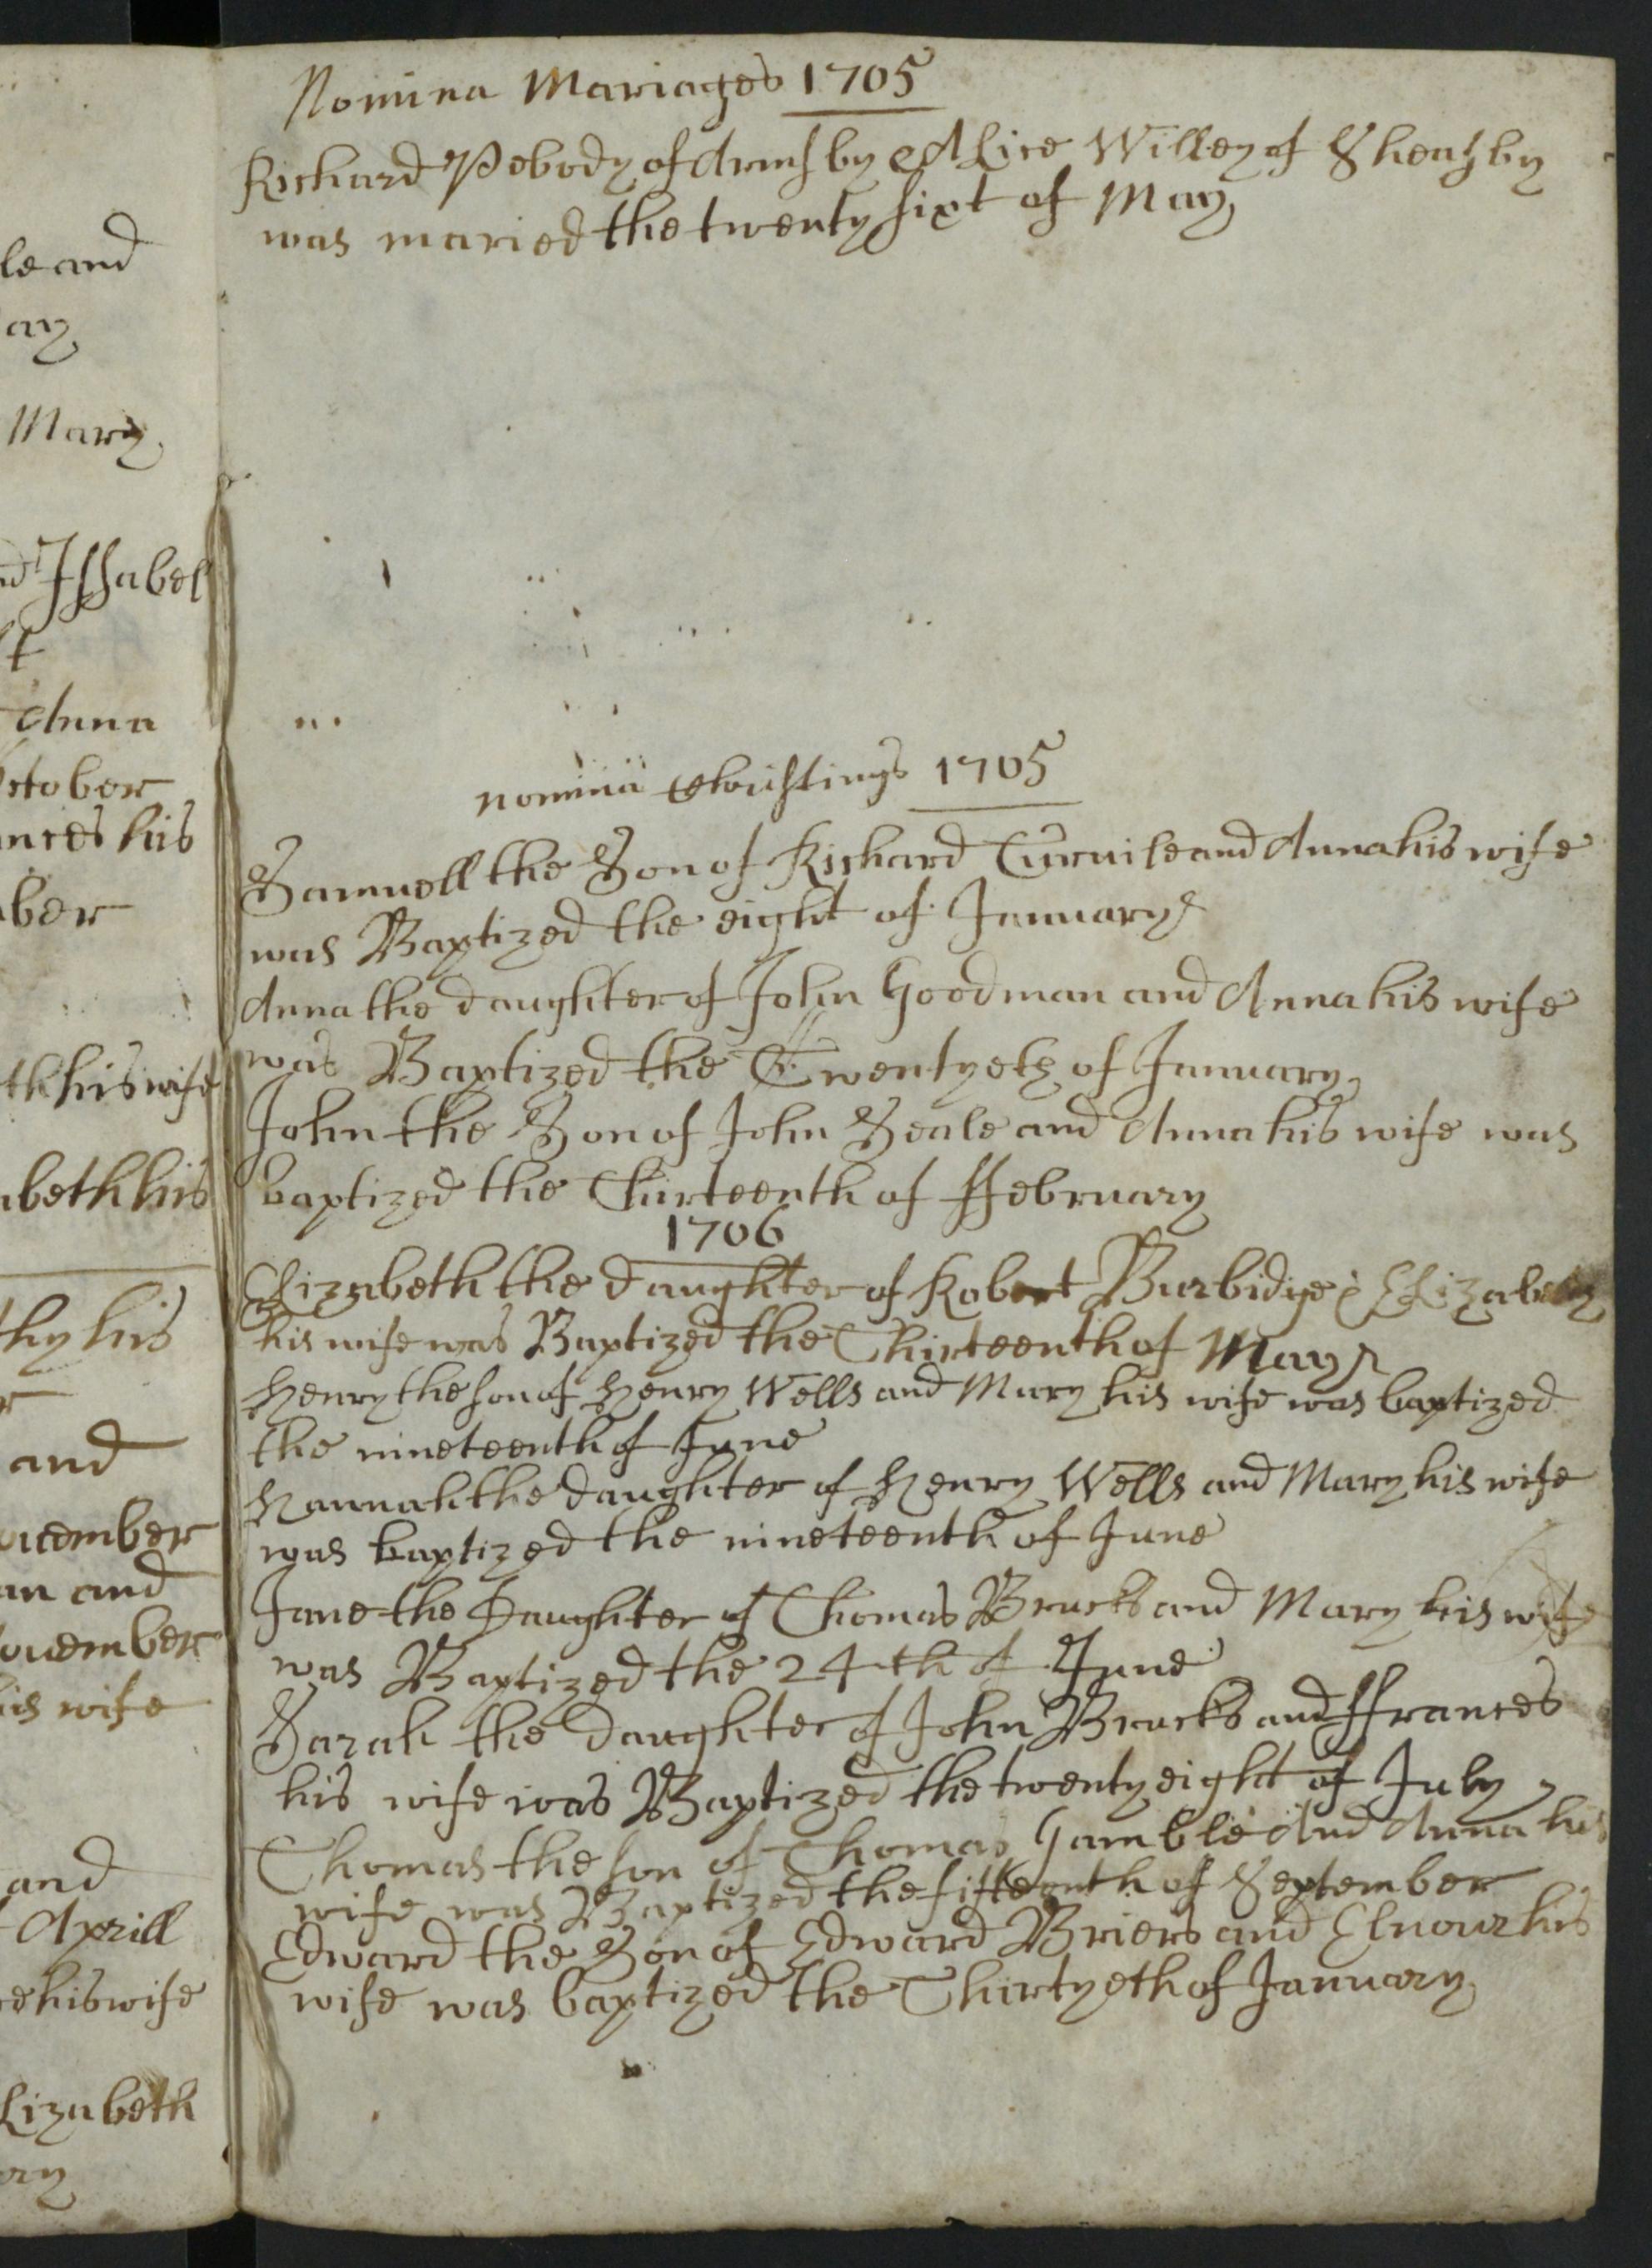 Nomina Mariages 1705
Richard Pebody of Arnesby & Alice Willey of Sheasby
was maried the twenty sixt of May
nomina Christings 1705
Samuell the Son of Richard Turuile and Anna his wife
was Baptized the eight of January
Anna the daughter of John Goodman and Anna his wife
was Baptized the Twentyeth of January
John the Son of John Seale and Anna his wife was
baptized the Thirteenth of ffebruary
1706
Elizabeth the daughter of Robert Burbidge & Elizabeth
his wife was Baptized the Thirteenth of May
Henry the son of Henry Wells and Mary his wife was baptized
the nineteenth of June
Hannah the daughter of Henry Wells and Mary his wife
was baptized the nineteenth of June
Jane the Daughter of Thomas Brucks and Mary his wife
was Baptized the 24th of June
Sarah the daughter of John Brucks and ffrances
his wife was Baptized the twenty eight of July
Thomas the son of Thomas Gamble And Anna his
wife was Baptized the fifteenth of September
Edward the Son of Edward Briers and Elnour his
wife was baptized the Thirtyeth of January
le and
ay
Mary
nd Issabel
Anna
october
nces his
ber
th his wife
abeth his
thy his
and
ucember
an and
ouember
his wife
and
Aprill
ce his wife
Lizabeth
ary